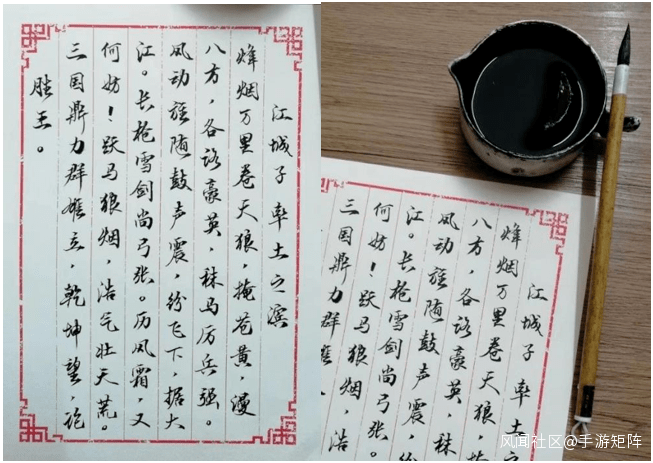 江城子 率土之滨
烽烟万里卷天狼，掩苍黄，漫
八方，各路豪英，秣马厉兵强。
风动旌随鼓声震，纷飞下，据大
江。长枪雪剑尚弓张。历风霜，又
何妨！跃马狼烟，浩气壮天荒。
三国鼎力群雄立，乾坤望，论
胜王。
江城子 率土
烽烟万里卷天狼，掩
八方，各路豪英，秣
风动旌随鼓声震，纷
江。长枪雪剑尚弓张。
何妨！跃马狼烟，浩
三国鼎力群雄
风闻社区@手游矩阵